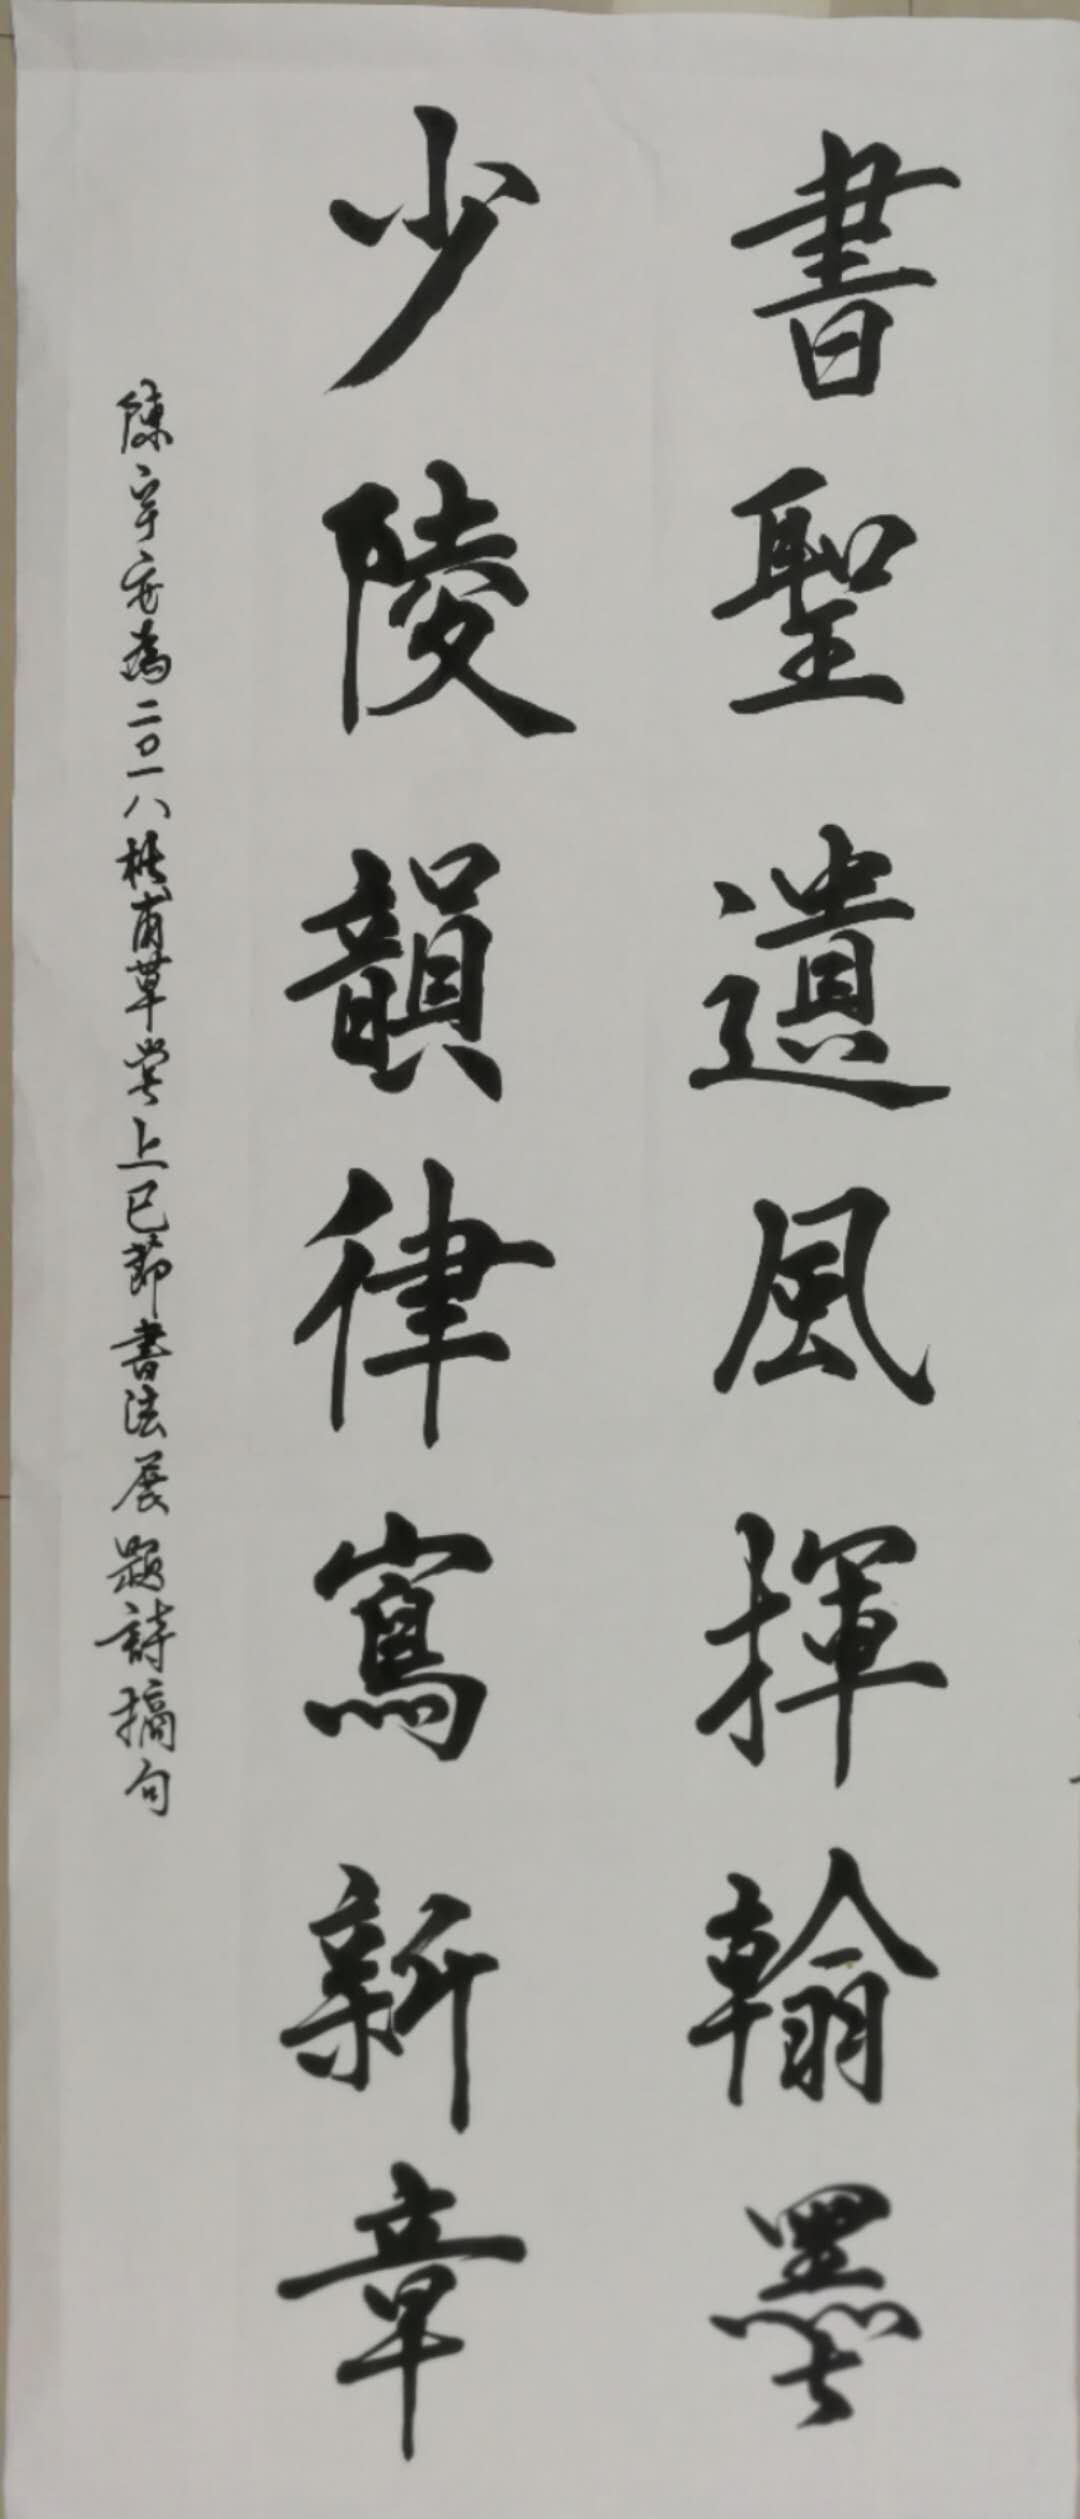 書聖遺風揮翰墨
少陵韻律寫新章
陳宇安為二〇一八杜甫草堂上巳節書法展題詩摘句